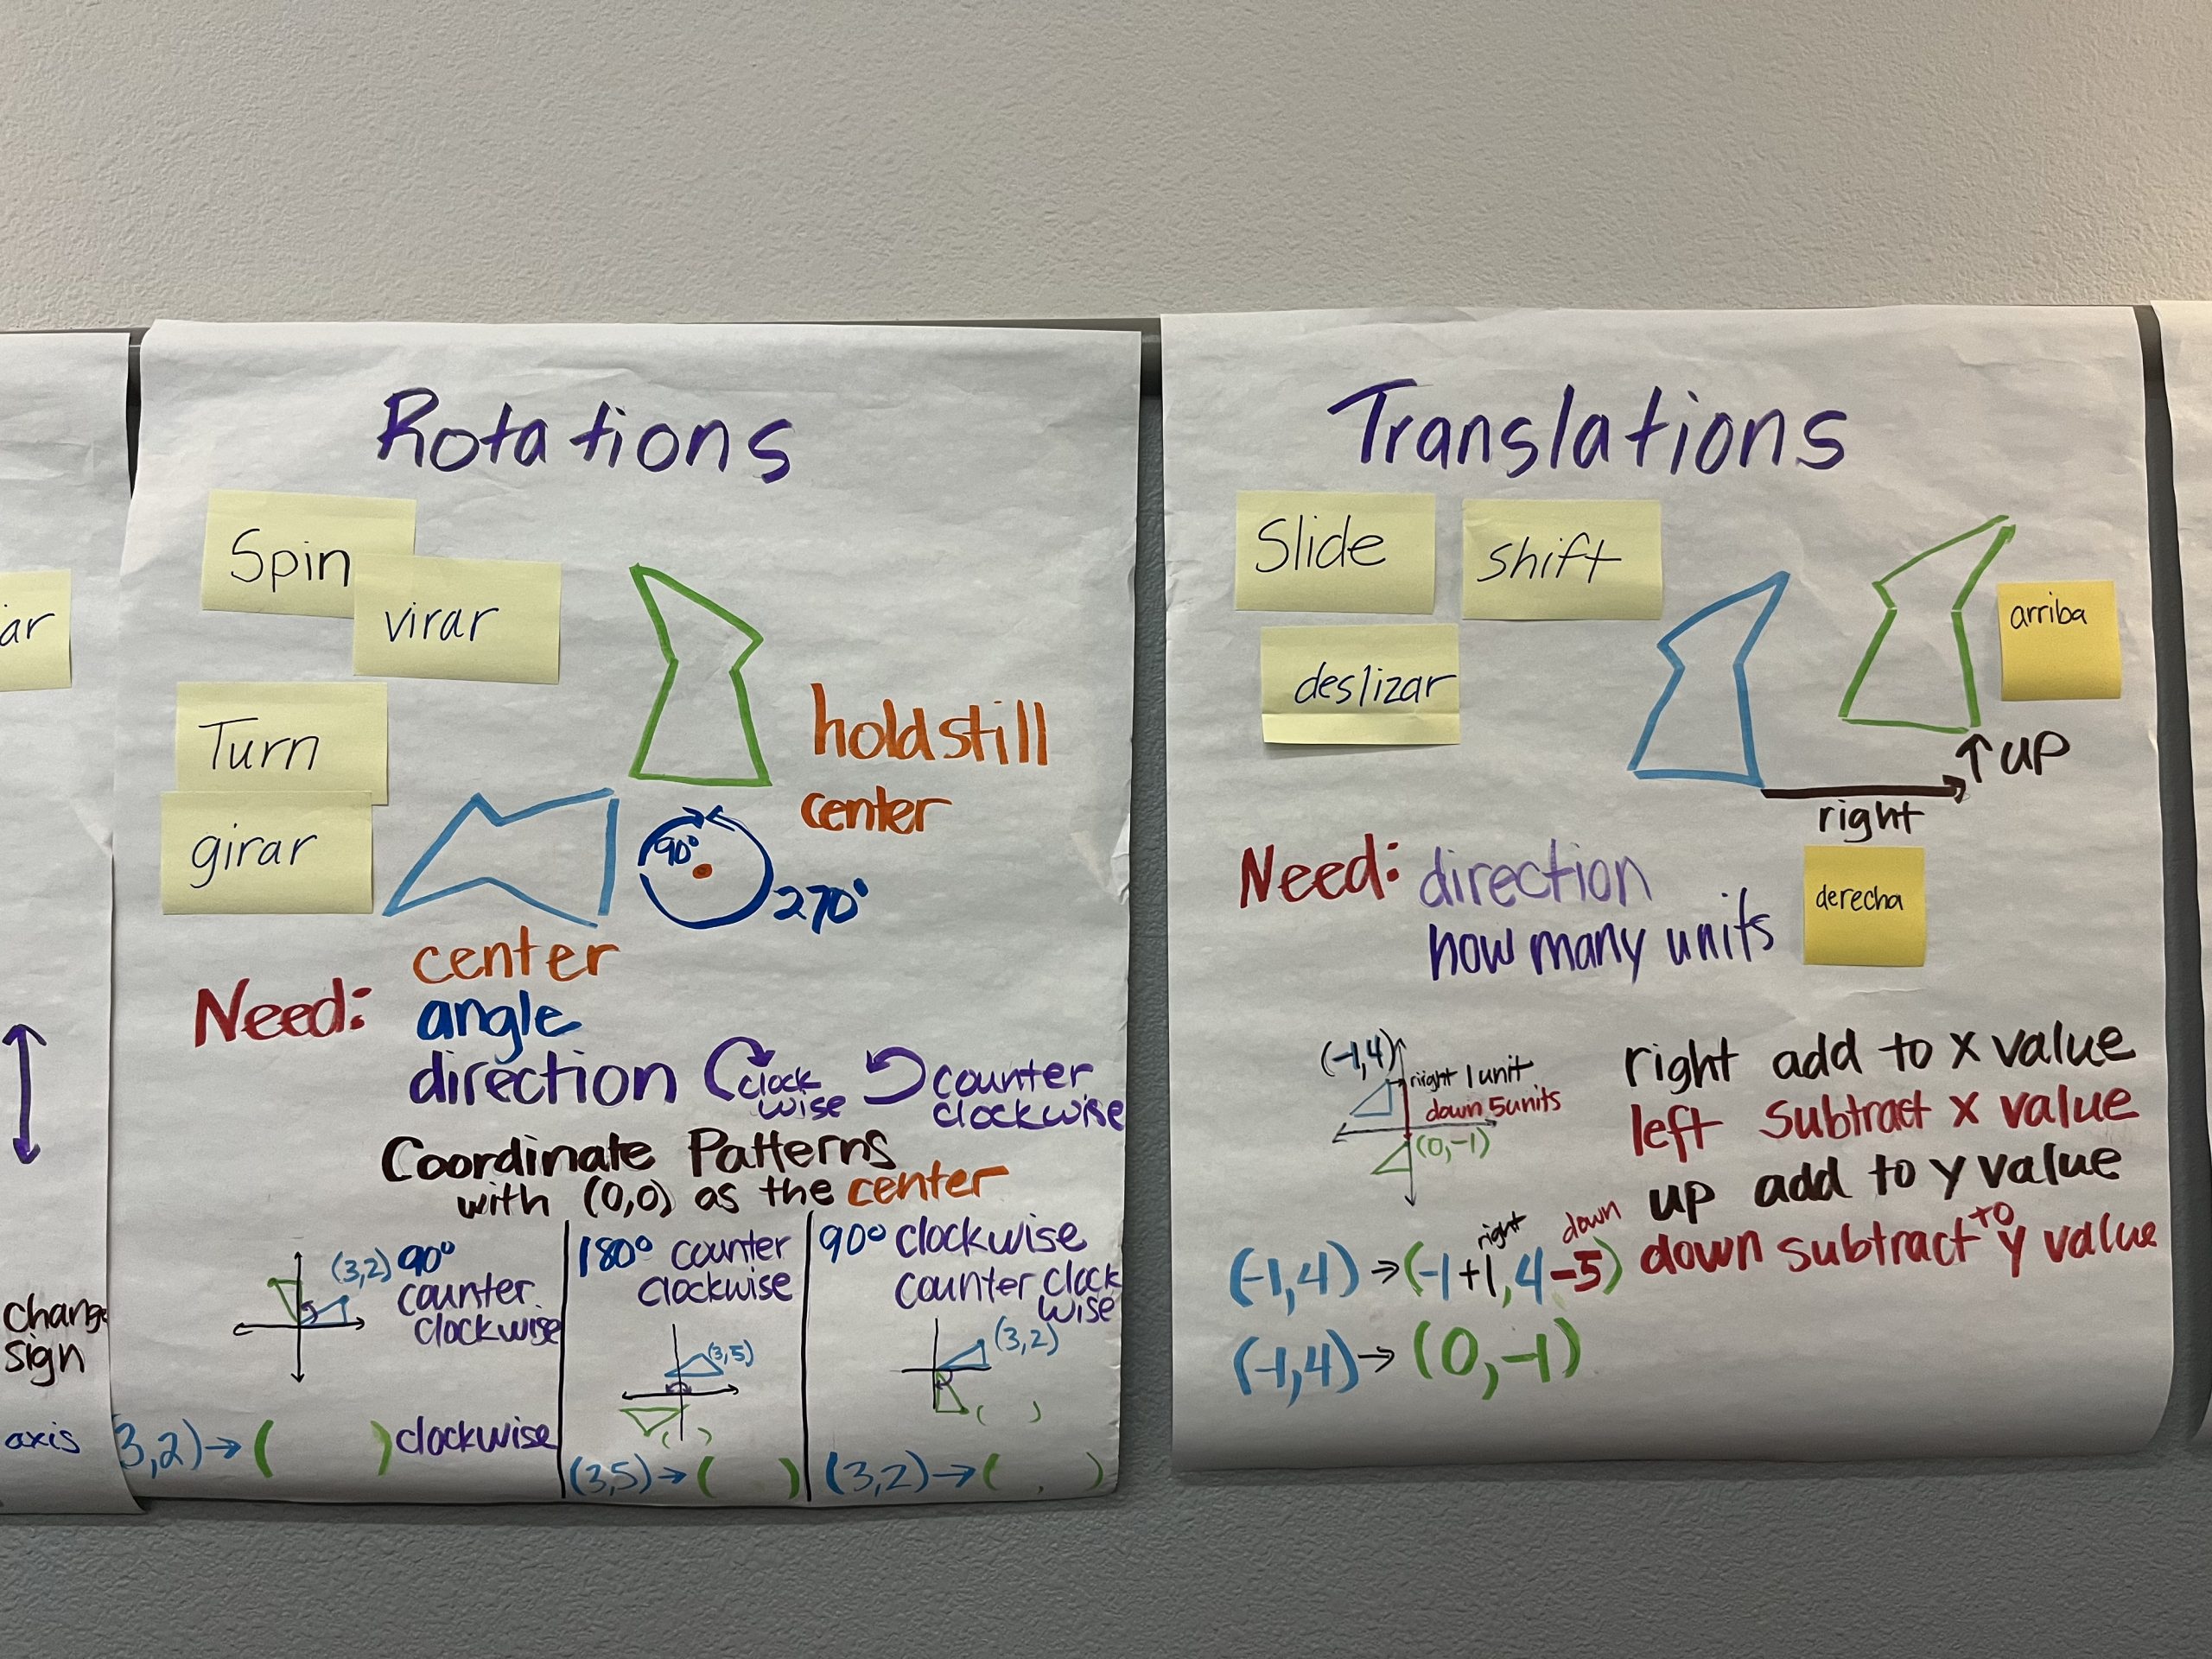 ar
change
sign
axis
Rotations
Spin
virar
Turn
girar
hold still
center
90°
270°
Need: center
angle
direction clock
wise
counter
clockwise
Coordinate Patterns
with (0,0) as the center
(3,2) 90°
counter
clockwise
3,2) → ( ) clockwise
180° counter
clockwise
(3,5)
( )
(3,5) → ( )
90° clockwise
counter clock
wise
(3,2)
( )
(3,2) → ( , )
Translations
Slide
shift
deslizar
arriba
↑ up
right
Need: direction
how many units
derecha
(-1,4)
right 1 unit
down 5 units
(0,-1)
right add to x value
left subtract x value
up add to y value
down subtract to y value
right
down
(-1,4) → (-1+1, 4-5)
(-1,4) → (0,-1)